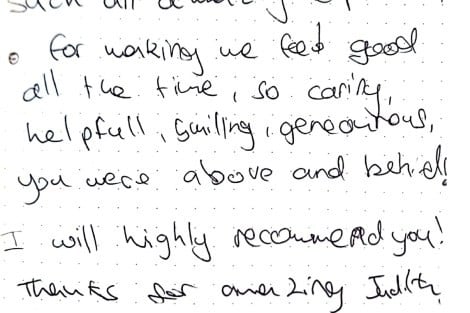 • for making us feel good
all the time, so caring,
helpfull, smiling, geneouitous,
you were above and behid!
I will highly recommend you!
Thanks for amazing Judith